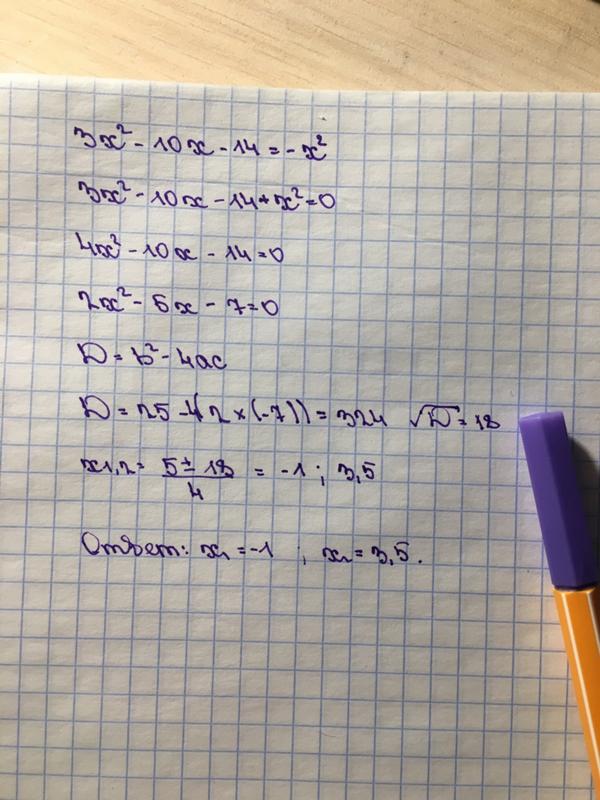 3x² - 10x - 14 = - x²
3x² - 10x - 14 + x² = 0
4x² - 10x - 14 = 0
2x² - 5x - 7 = 0
D = b² - 4ac
D = 25 - 4(2 × (-7)) = 324 √D = 18
x1,2 = 5 ± 18 / 4 = -1 ; 3,5
Ответ: x₁ = -1 ; x₂ = 3,5.